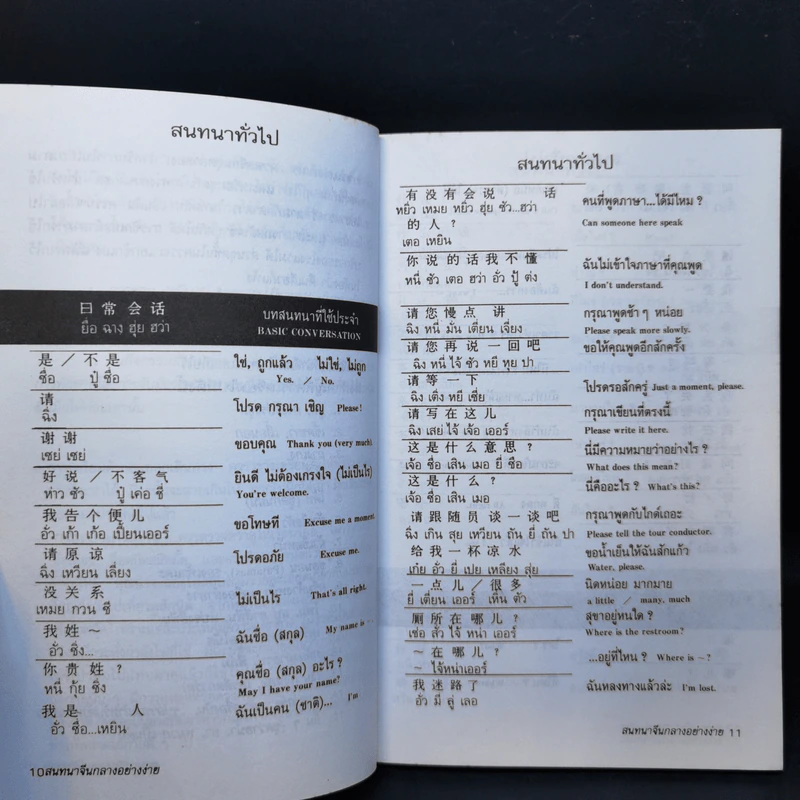 สนทนาทั่วไป
日常会话
ยื่อ ฉาง ฮุ่ย ฮว่า
บทสนทนาที่ใช้ประจำ
BASIC CONVERSATION
是 / 不是
ซื่อ ปู๋ ซื่อ
ใช่, ถูกแล้ว ไม่ใช่, ไม่ถูก
Yes. / No.
请
ฉิ่ง
โปรด กรุณา เชิญ Please!
谢谢
เซย่ เซย่
ขอบคุณ Thank you (very much).
好说 / 不客气
ห่าว ซัว ปู๋ เค่อ ชี่
ยินดี ไม่ต้องเกรงใจ (ไม่เป็นไร)
You're welcome.
我告个便儿
อั่ว เก้า เก้อ เปี้ยนเออร์
ขอโทษที Excuse me a moment.
请原谅
ฉิ่ง เหวียน เลี่ยง
โปรดอภัย Excuse me.
没关系
เหมย กวน ซี
ไม่เป็นไร That's all right.
我姓~
อั่ว ซิ่ง...
ฉันชื่อ (สกุล) My name is
你贵姓?
หนี่ กุ้ย ซิ่ง
คุณชื่อ (สกุล) อะไร ?
May I have your name?
我是 人
อั่ว ซื่อ...เหยิน
ฉันเป็นคน (ชาติ)... I'm
10 สนทนาจีนกลางอย่างง่าย
สนทนาทั่วไป
有没有会说 话
หยิ่ว เหมย หยิ่ว ฮุ่ย ซัว...ฮว่า
的人?
เตอ เหยิน
คนที่พูดภาษา...ได้มีไหม ?
Can someone here speak
你说的话我不懂
หนี่ ซัว เตอ ฮว่า อั่ว ปู้ ต่ง
ฉันไม่เข้าใจภาษาที่คุณพูด
I don't understand.
请您慢点 讲
ฉิ่ง หนี่ มั่น เตี่ยน เจี่ยง
กรุณาพูดช้า ๆ หน่อย
Please speak more slowly.
请您再说一回吧
ฉิ่ง หนี่ ไจ้ ซัว หยี หุย ปา
ขอให้คุณพูดอีกสักครั้ง
请等一下
ฉิ่ง เติ่ง หยี เซี่ย
โปรดรอสักครู่ Just a moment, please.
请写在这儿
ฉิ่ง เสย่ ไจ้ เจ้อ เออร์
กรุณาเขียนที่ตรงนี้
Please write it here.
这是什么意思?
เจ้อ ซื่อ เสิน เมอ ยี่ ซือ
นี่มีความหมายว่าอย่างไร ?
What does this mean?
这是什么?
เจ้อ ซื่อ เสิน เมอ
นี่คืออะไร ? What's this?
请跟随员谈一谈吧
ฉิ่ง เกิน สุย เหวียน ถัน ยี่ ถัน ปา
กรุณาพูดกับไกด์เถอะ
Please tell the tour conductor.
给我一杯凉水
เก่ย อั่ว ยี่ เปย เหลียง สุ่ย
ขอน้ำเย็นให้ฉันสักแก้ว
Water, please.
一点儿 / 很多
ยี่ เตี่ยน เออร์ เหิ่น ตัว
นิดหน่อย มากมาย
a little / many, much
厕所在哪儿?
เซ่อ สั่ว ไจ้ หน่า เออร์
สุขาอยู่หนใด ?
Where is the restroom?
~ 在哪儿?
~ ไจ้หน่าเออร์
...อยู่ที่ไหน ? Where is ~?
我迷路了
อั่ว มี ลู่ เลอ
ฉันหลงทางแล้วล่ะ I'm lost.
สนทนาจีนกลางอย่างง่าย 11